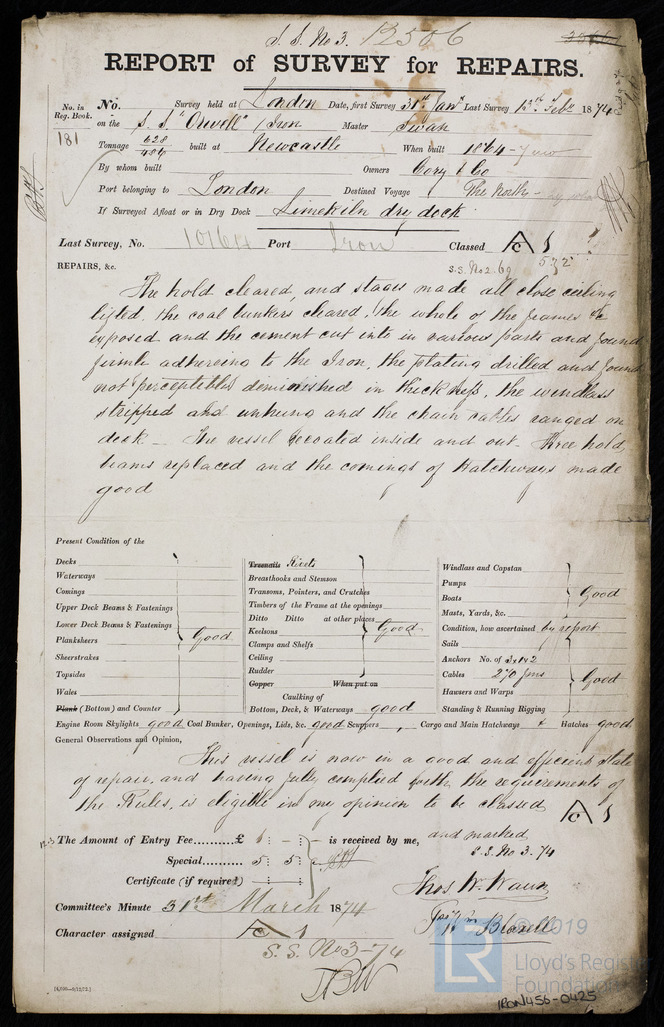 S. S. No 3. 12506
REPORT of SURVEY for REPAIRS.
No. in Reg. Book. No. Survey held at London Date, first Survey 31st Jany Last Survey 13th Feby 1874
181 on the S.S. "Orwell" Iron Master Swan
Tonnage 628 / 486 built at Newcastle When built 1864 -
By whom built Owners Cory & Co
Port belonging to London Destined Voyage The North -
If Surveyed Afloat or in Dry Dock Limekiln dry dock.
Last Survey, No. 10164 Port Iron Classed A 1
S.S. No 2. 69 5.72
REPAIRS, &c.
The hold cleared, and stages made all close ceiling
lifted, the coal bunkers cleared, the whole of the frames &c
exposed and the cement cut into in various parts and found
firmly adhering to the Iron, the plating drilled and found
not perceptibly deminished in thickness, the windlass
stripped and unhung and the chain cables ranged on
deck - The vessel recoated inside and out - Three hold
beams replaced and the comings of Hatchways made
good
Present Condition of the
Decks
Waterways
Comings
Upper Deck Beams & Fastenings
Lower Deck Beams & Fastenings
Planksheers
Good
Sheerstrakes
Topsides
Wales
Plank (Bottom) and Counter
Treenails Rivets
Breasthooks and Stemson
Transoms, Pointers, and Crutches
Timbers of the Frame at the openings
Ditto Ditto at other places
Keelsons
Good
Clamps and Shelfs
Ceiling
Rudder
Copper When put on
Caulking of
Bottom, Deck, & Waterways good
Windlass and Capstan
Pumps
Boats
Good
Masts, Yards, &c.
Condition, how ascertained by report
Sails
Anchors No. of 3 x 1 x 2
Cables 270 fms
Good
Hawsers and Warps
Standing & Running Rigging
Engine Room Skylights good Coal Bunker, Openings, Lids, &c. good Scuppers Cargo and Main Hatchways Hatches good
General Observations and Opinion,
This vessel is now in a good and efficient state
of repair, and having fully complied with the requirements of
the Rules, is eligible in my opinion to be classed A 1
and marked
S.S. No 3. 74
The Amount of Entry Fee..........£ - is received by me,
Special.......... 5 : 5 :
Certificate (if required)
Committee's Minute 31st March 1874
Character assigned A 1
S. S. No 3-74
[4,000—9/12/72.]
LR © 2019
Lloyd's Register
Foundation
IRON456-0425